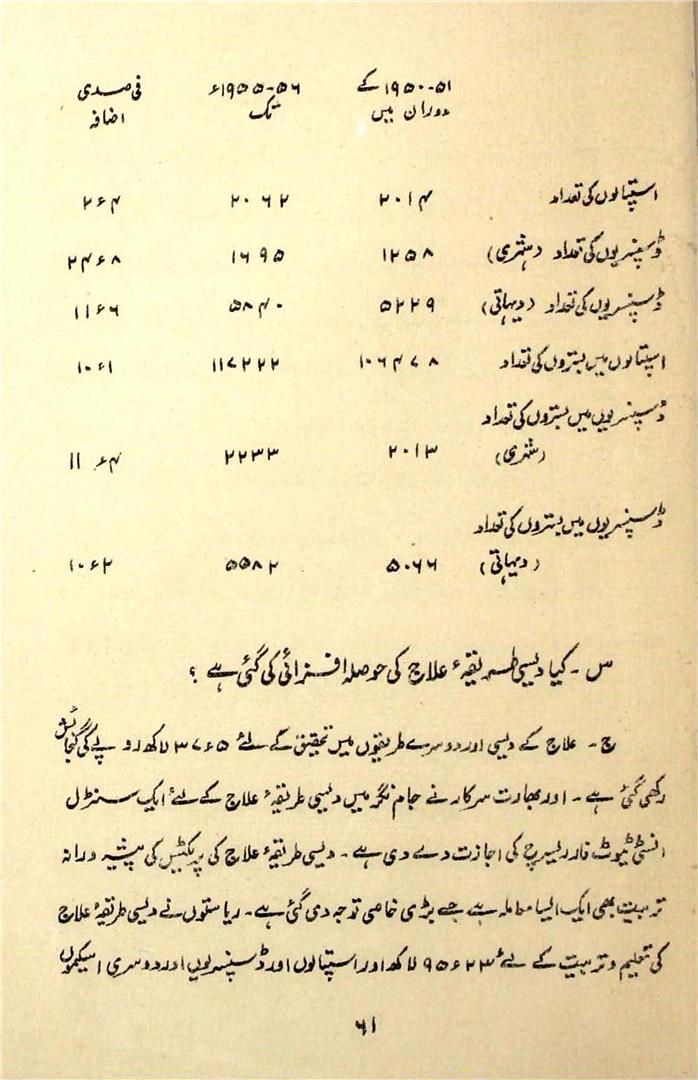 ۵۱-۱۹۵۰ کے ۵۶-۱۹۵۵ء فی صدی
دوران میں تک اضافہ
اسپتالوں کی تعداد ۲۰۱۴ ۲۰۶۲ ۲ء۴
ڈسپنسریوں کی تعداد (شہری) ۱۲۵۸ ۱۶۹۵ ۲۴ء۸
ڈسپنسریوں کی تعداد (دیہاتی) ۵۲۲۹ ۵۸۴۰ ۱۱ء۶
اسپتالوں میں بستروں کی تعداد ۱۰۶۴۷۸ ۱۱۷۲۲۲ ۱۰ء۱
ڈسپنسریوں میں بستروں کی تعداد
(شہری) ۲۰۱۳ ۲۲۳۳ ۱۱ء۴
ڈسپنسریوں میں بستروں کی تعداد
(دیہاتی) ۵۰۶۶ ۵۵۸۲ ۱۰ء۲
س ۔ کیا دیسی طریقۂ علاج کی حوصلہ افزائی کی گئی ہے ؟
ج ۔ علاج کے دیسی اور دوسرے طریقوں میں تحقیق کے لئے ۳۷ء۵ لاکھ روپے کی گنجائش
رکھی گئی ہے ۔ اور بھارت سرکار نے جام نگر میں دیسی طریقۂ علاج کے لئے ایک سنٹرل
انسٹی ٹیوٹ فار ریسرچ کی اجازت دے دی ہے ۔ دیسی طریقۂ علاج کی پریکٹس کی پیشہ ورانہ
تربیت بھی ایک ایسا معاملہ ہے جسے بڑی خاص توجہ دی گئی ہے ۔ ریاستوں نے دیسی طریقۂ علاج
کی تعلیم و تربیت کے لئے ۹۵ء۲۳ لاکھ اور اسپتالوں اور ڈسپنسریوں اور دوسری اسکیموں
۶۱